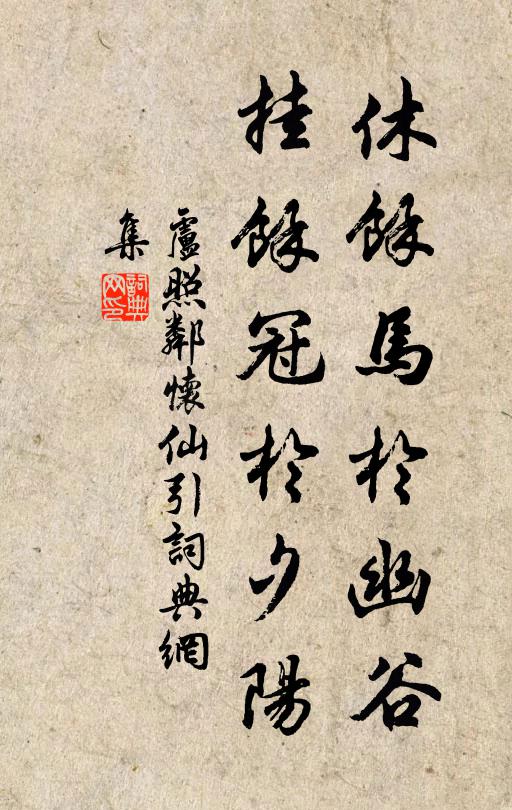 休餘馬於幽谷
挂餘冠於夕陽
盧照鄰懷仙引詞典網
集
詞典
网印